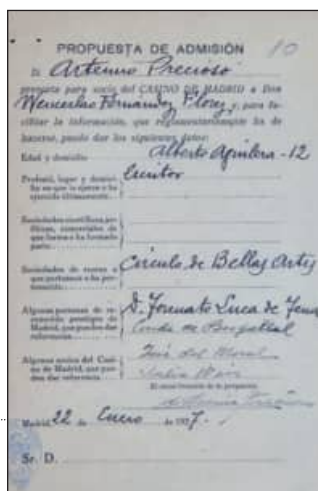 PROPUESTA DE ADMISIÓN 10
D. Artemio Precioso
propuesta para socio del CASINO DE MADRID a Don
Wenceslao Fernandez Florez y, para fa-
cilitar la información, que reglamentariamente ha de
hacerse, puede dar los siguientes datos:
Edad y domicilio Alberto Aguilera - 12
Profesión, lugar y domici-
lio en que la ejerce o ha
ejercido últimamente.
Escritor
Sociedades científicas, po-
líticas, comerciales de
que forma o ha formado
parte
Sociedades de recreo a
que pertenece o ha per-
tenecido
Circulo de Bellas Artes
Algunas personas de re-
conocido prestigio de
Madrid, que puedan dar
referencias
D. Torcuato Luca de Tena
Conde de Bugallal
Algunos socios del Casi-
no de Madrid, que pue-
dan dar referencia
José del Moral
El socio firmante de la propuesta,
Madrid, 22 de Enero de 1927.
Sr. D.